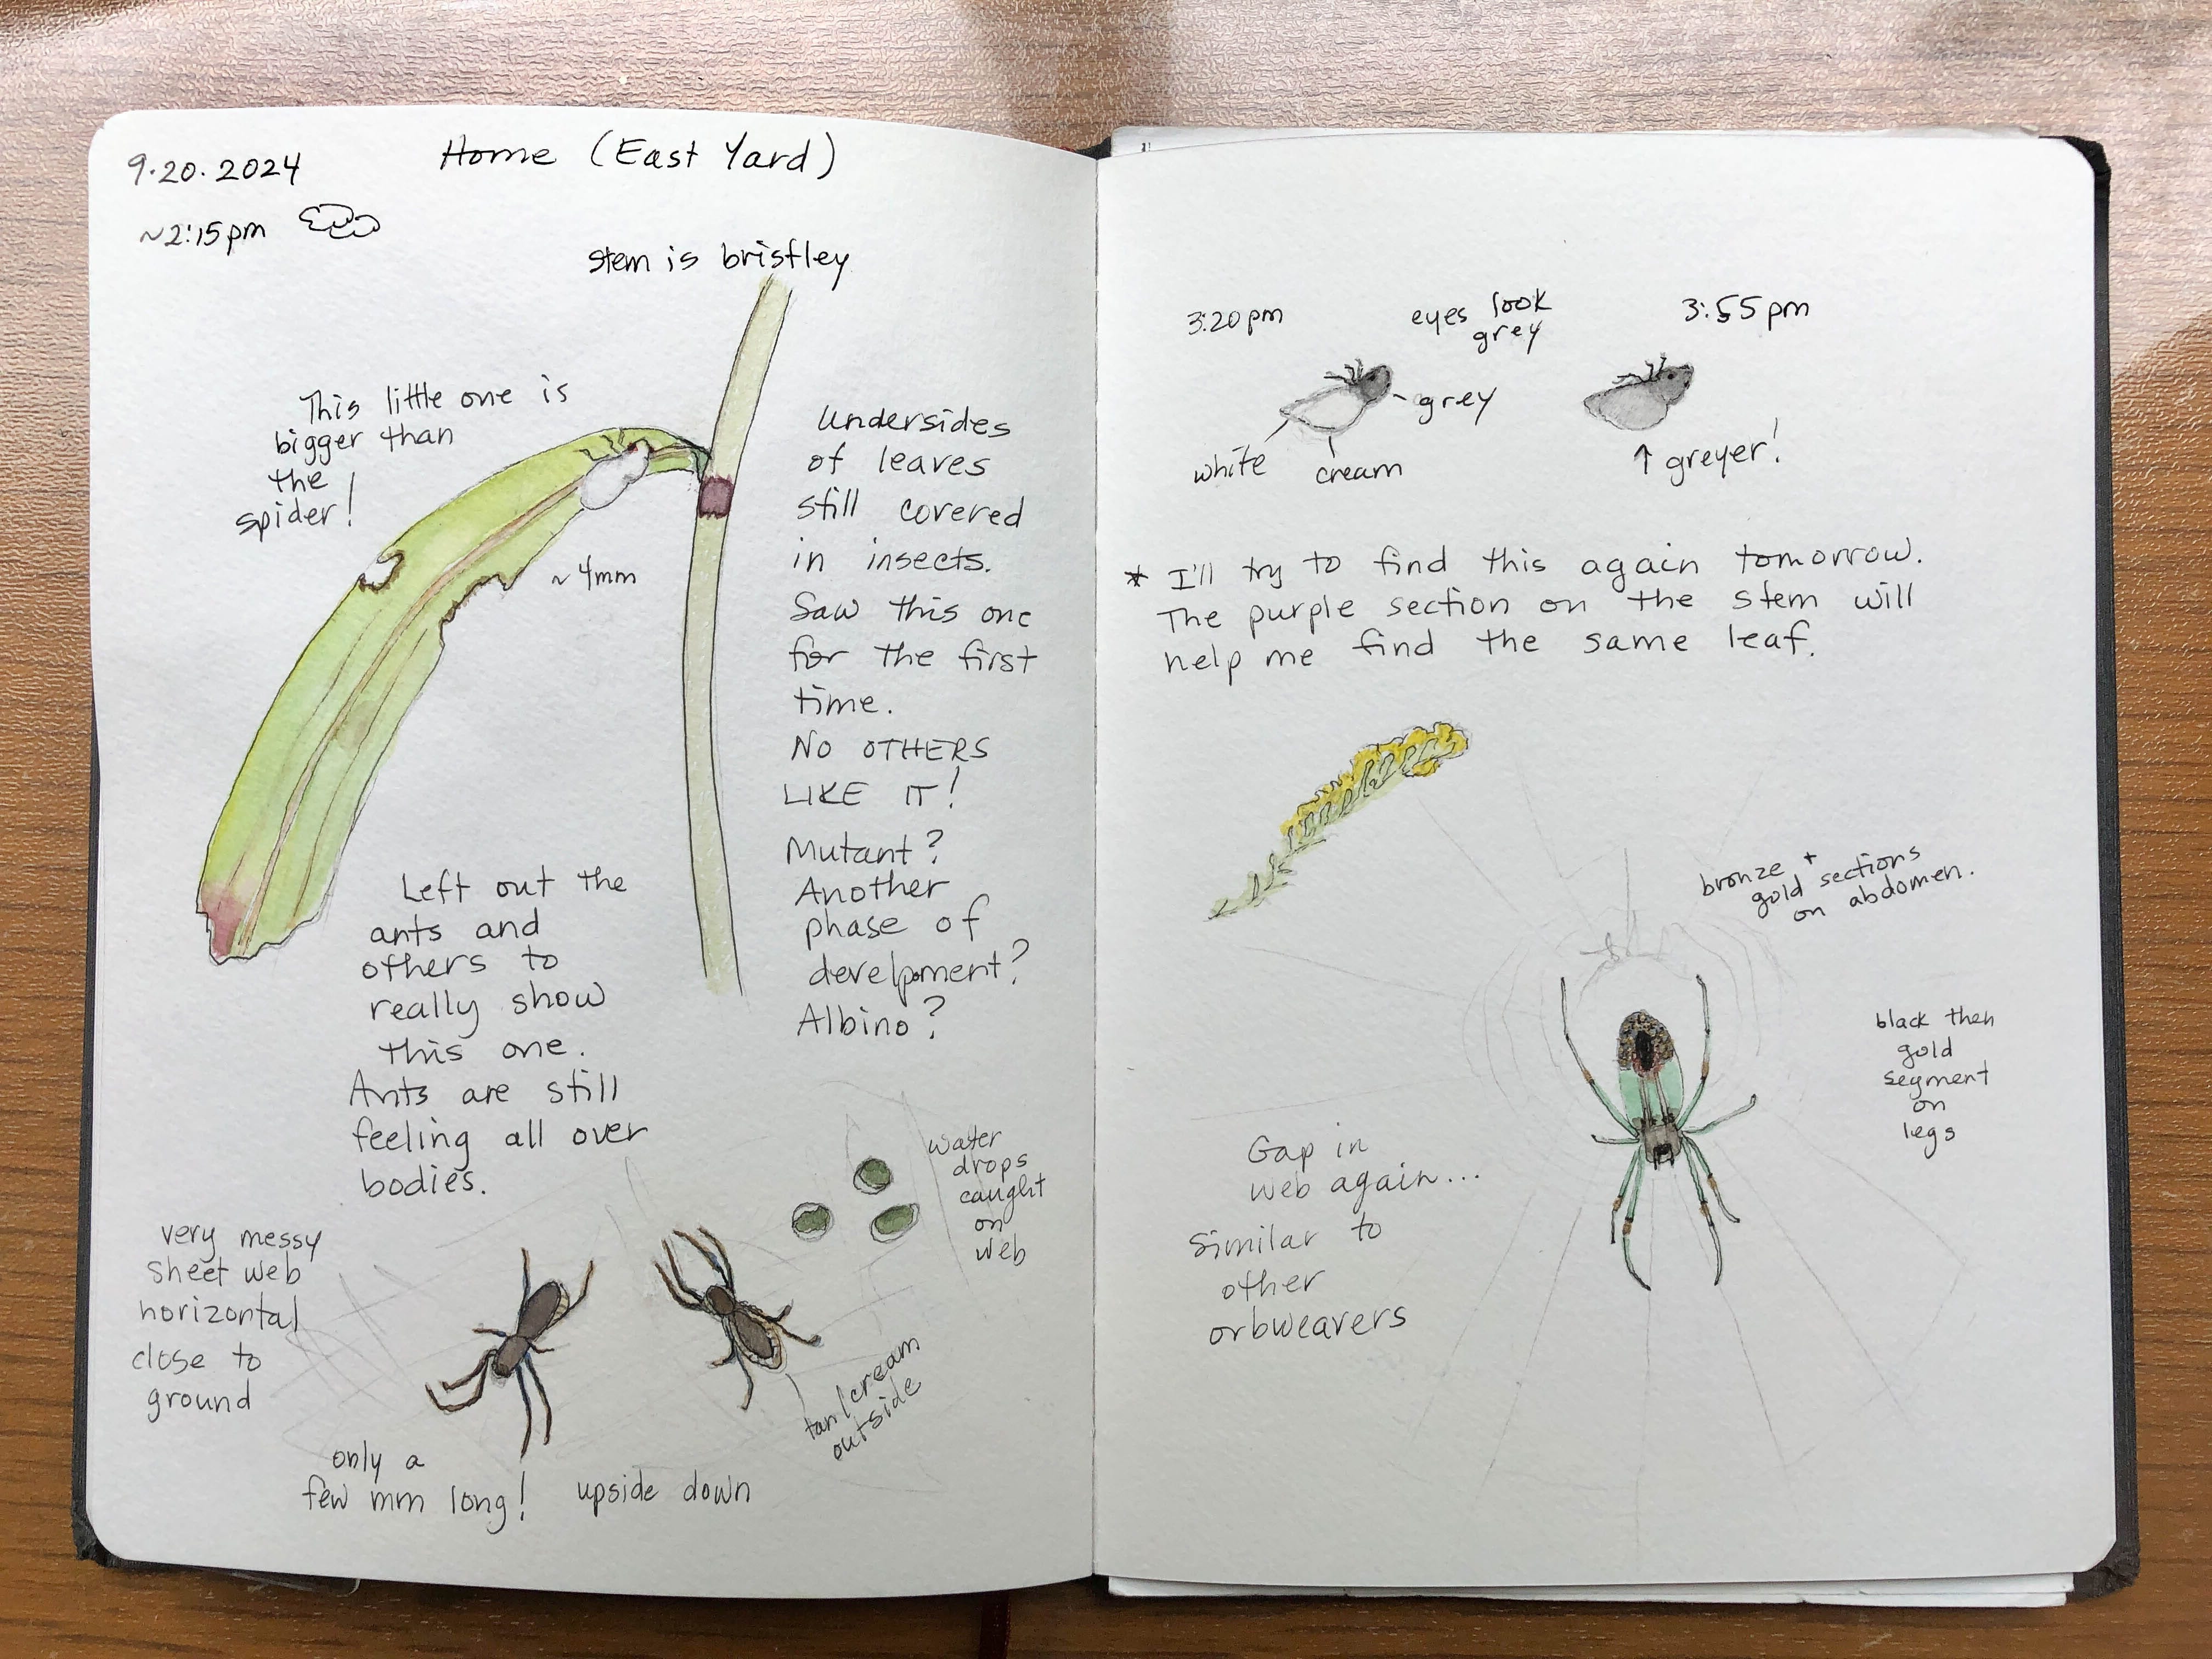 9.20.2024
Home (East Yard)
~2:15pm
stem is bristley
This little one is
bigger than
the
spider!
~4mm
Undersides
of leaves
still covered
in insects.
Saw this one
for the first
time.
NO OTHERS
LIKE IT!
Mutant?
Another
phase of
develpment?
Albino?
Left out the
ants and
others to
really show
this one.
Ants are still
feeling all over
bodies.
very messy
sheet web
horizontal
close to
ground
water
drops
caught
on
web
tan/cream
outside
only a
few mm long!
upside down
3:20pm
eyes look
grey
grey
white
cream
3:55pm
↑ greyer!
* I'll try to find this again tomorrow.
The purple section on the stem will
help me find the same leaf.
bronze +
gold sections
on abdomen.
black then
gold
segment
on
legs
Gap in
web again...
Similar to
other
orbweavers